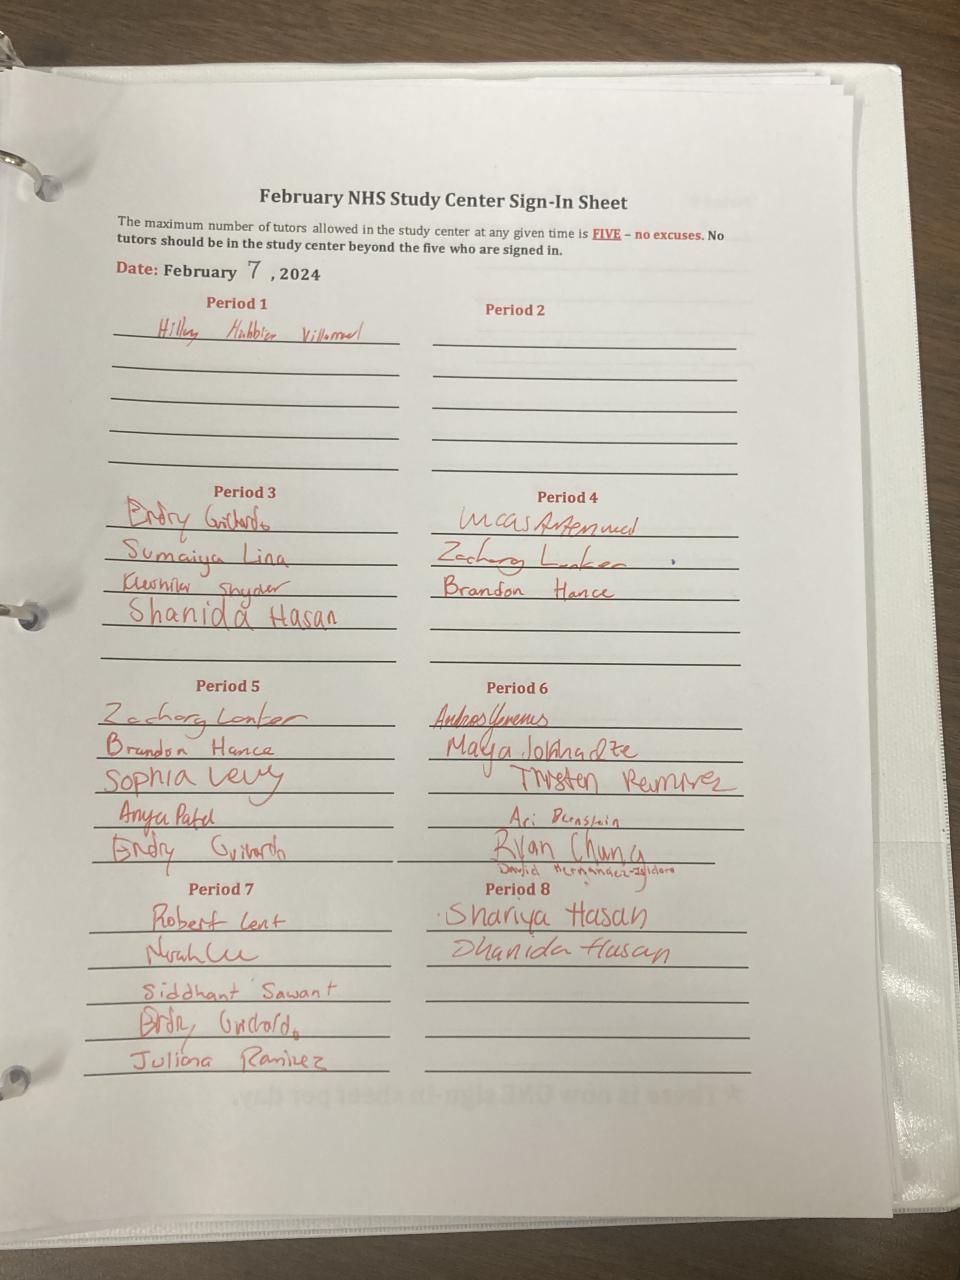 February NHS Study Center Sign-In Sheet
The maximum number of tutors allowed in the study center at any given time is FIVE – no excuses. No
tutors should be in the study center beyond the five who are signed in.
Date: February 7, 2024
Period 1
Villarreal
Period 2
Period 3
Endry
Sumaiya Lina
Snyder
Shanida Hasan
Period 4
Lucas
Zachary Lanker
Brandon Hance
Period 5
Zachary Lanker
Brandon Hance
Sophia Levy
Anya Patel
Endry
Period 6
Andres
Maya Jokhadze
Ramirez
Ari Bernstein
Ryan Chung
David Hernandez-Isidoro
Period 7
Robert Lent
Noah
Siddhant Sawant
Endry
Juliana Ramirez
Period 8
Shariya Hasan
Shanida Hasan
There is now ONE sign-in sheet per day.